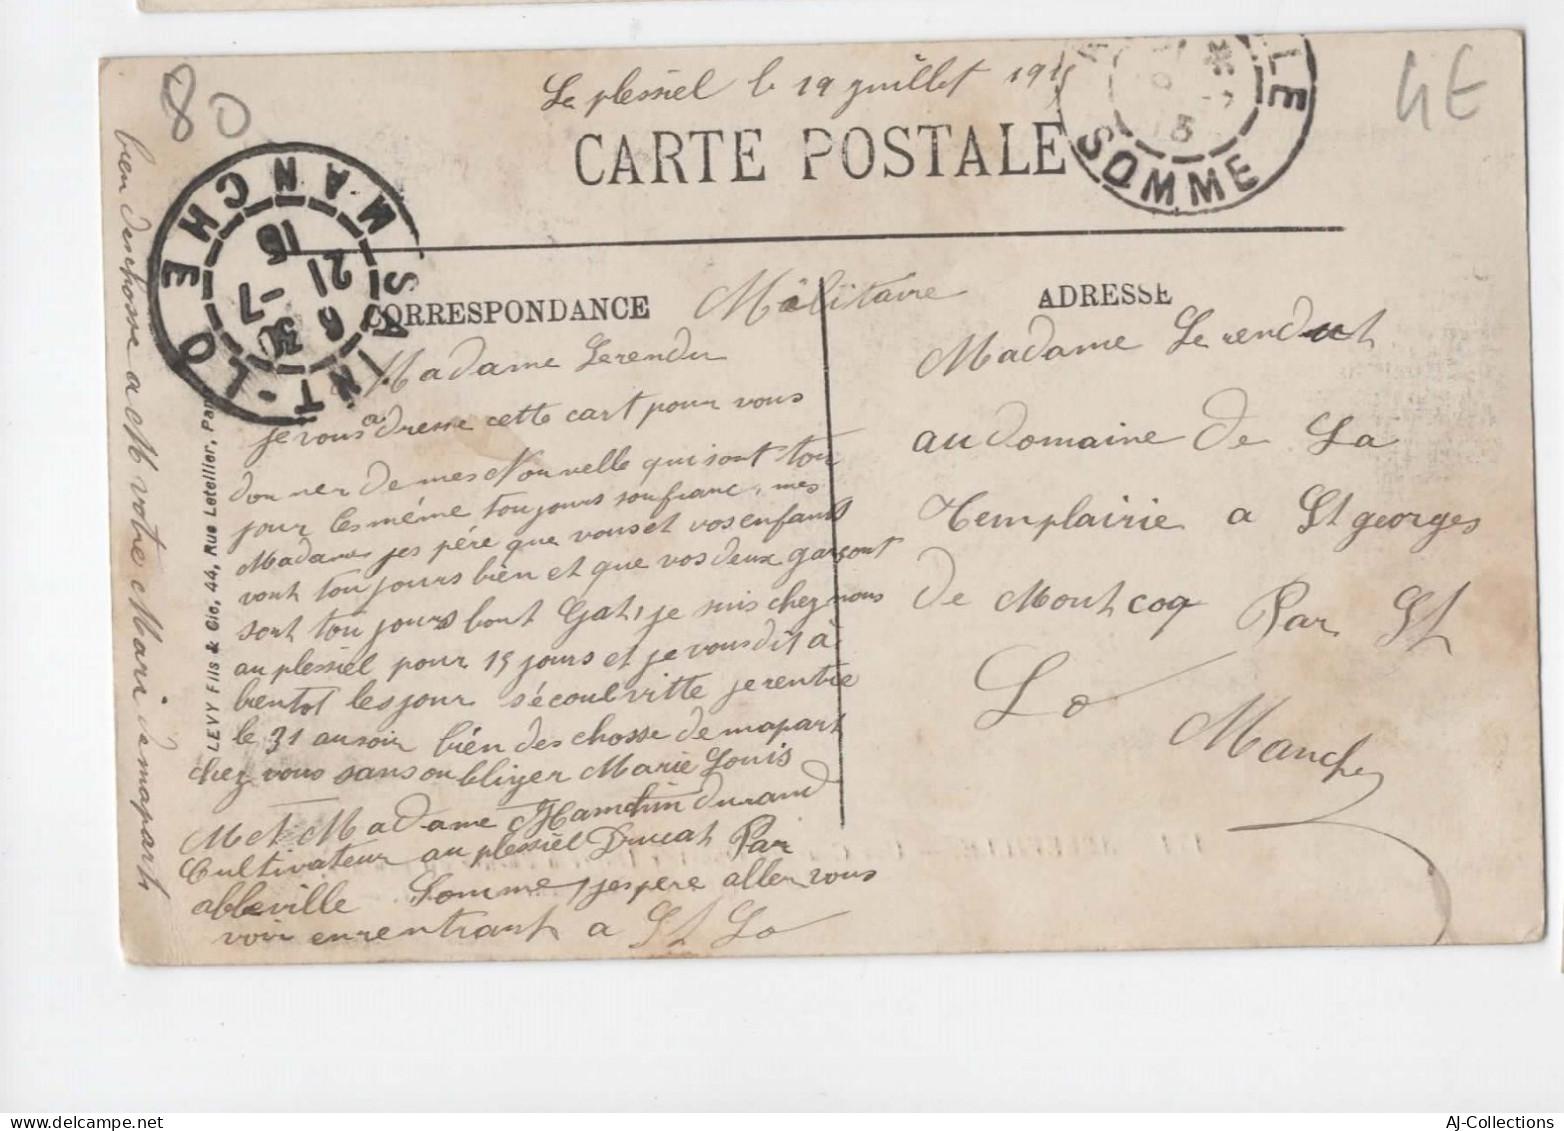 80
4E
Le plessiel le 19 juillet 1915
CARTE POSTALE
LE
SOMME
SAINT-LO
MANCHE
6 30
21 -7
15
CORRESPONDANCE
Militaire
ADRESSE
Madame Lerendu
je vous adresse cette cart pour vous
donner de mes Nouvelle qui sont tou
jour les même toujours soufranc, mes
Madame jes père que vous et vos enfants
vont tou jours bien et que vos deux garsont
sont tou jours bont Gat, je suis chez nous
au plessiel pour 15 jours et je vous dit à
bientot les jour s'écoul vitte je rentre
le 31 au soir bien des chosse de mapart
chez vous sans oublizer Marie Louis
M et Madame Hamchin durand
Cultivateur au plessiel Drucat Par
abbeville Somme, jespere aller vous
voir en rentrant a St Lo
bien des chosse a M votre Mari de mapart
LEVY Fils & Cie, 44, Rue Letellier, Par
Madame Lerendu
au domaine de La
Templairie a St georges
de Montcoq Par St
Lo Manche
AJ-Collections